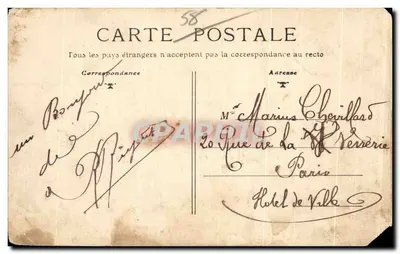 58
CARTE POSTALE
Tous les pays étrangers n'acceptent pas la correspondance au recto
Correspondance
Adresse
un Bonjour
de
à
Mr Marius Chevillard
20 Rue de la Verrerie
Paris
Hotel de Ville
CPARAMA